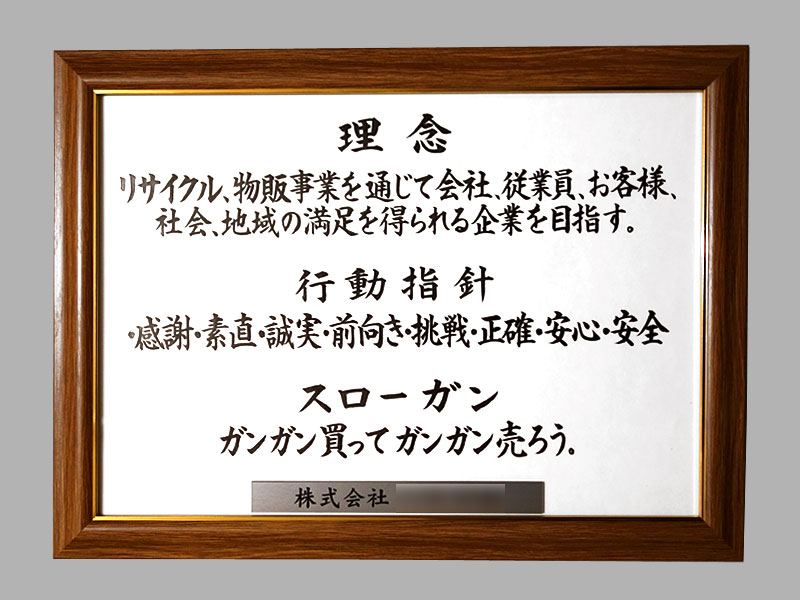 理念
リサイクル、物販事業を通じて会社、従業員、お客様、
社会、地域の満足を得られる企業を目指す。
行動指針
・感謝・素直・誠実・前向き・挑戦・正確・安心・安全
スローガン
ガンガン買ってガンガン売ろう。
株式会社